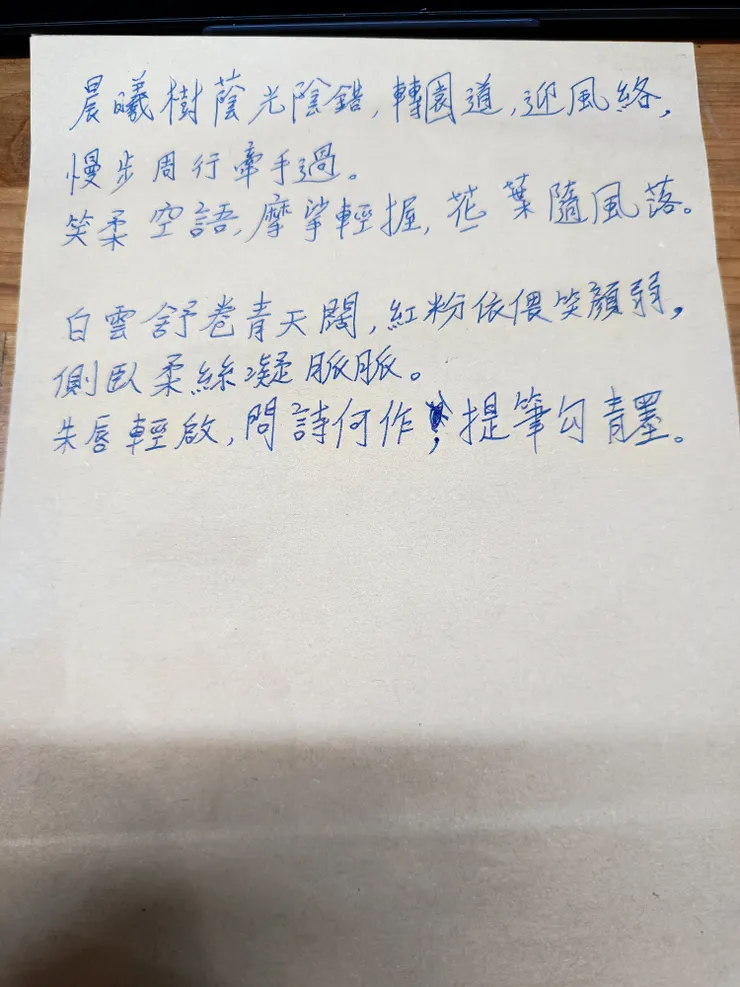 晨曦樹蔭光陰錯,轉園道,迎風絡,
慢步周行牽手過。
笑柔空語,摩挲輕握,花葉隨風落。
白雲舒卷青天闊,紅粉依偎笑顏弱,
側臥柔絲凝脈脈。
朱唇輕啟,問詩何作,提筆勾青墨。